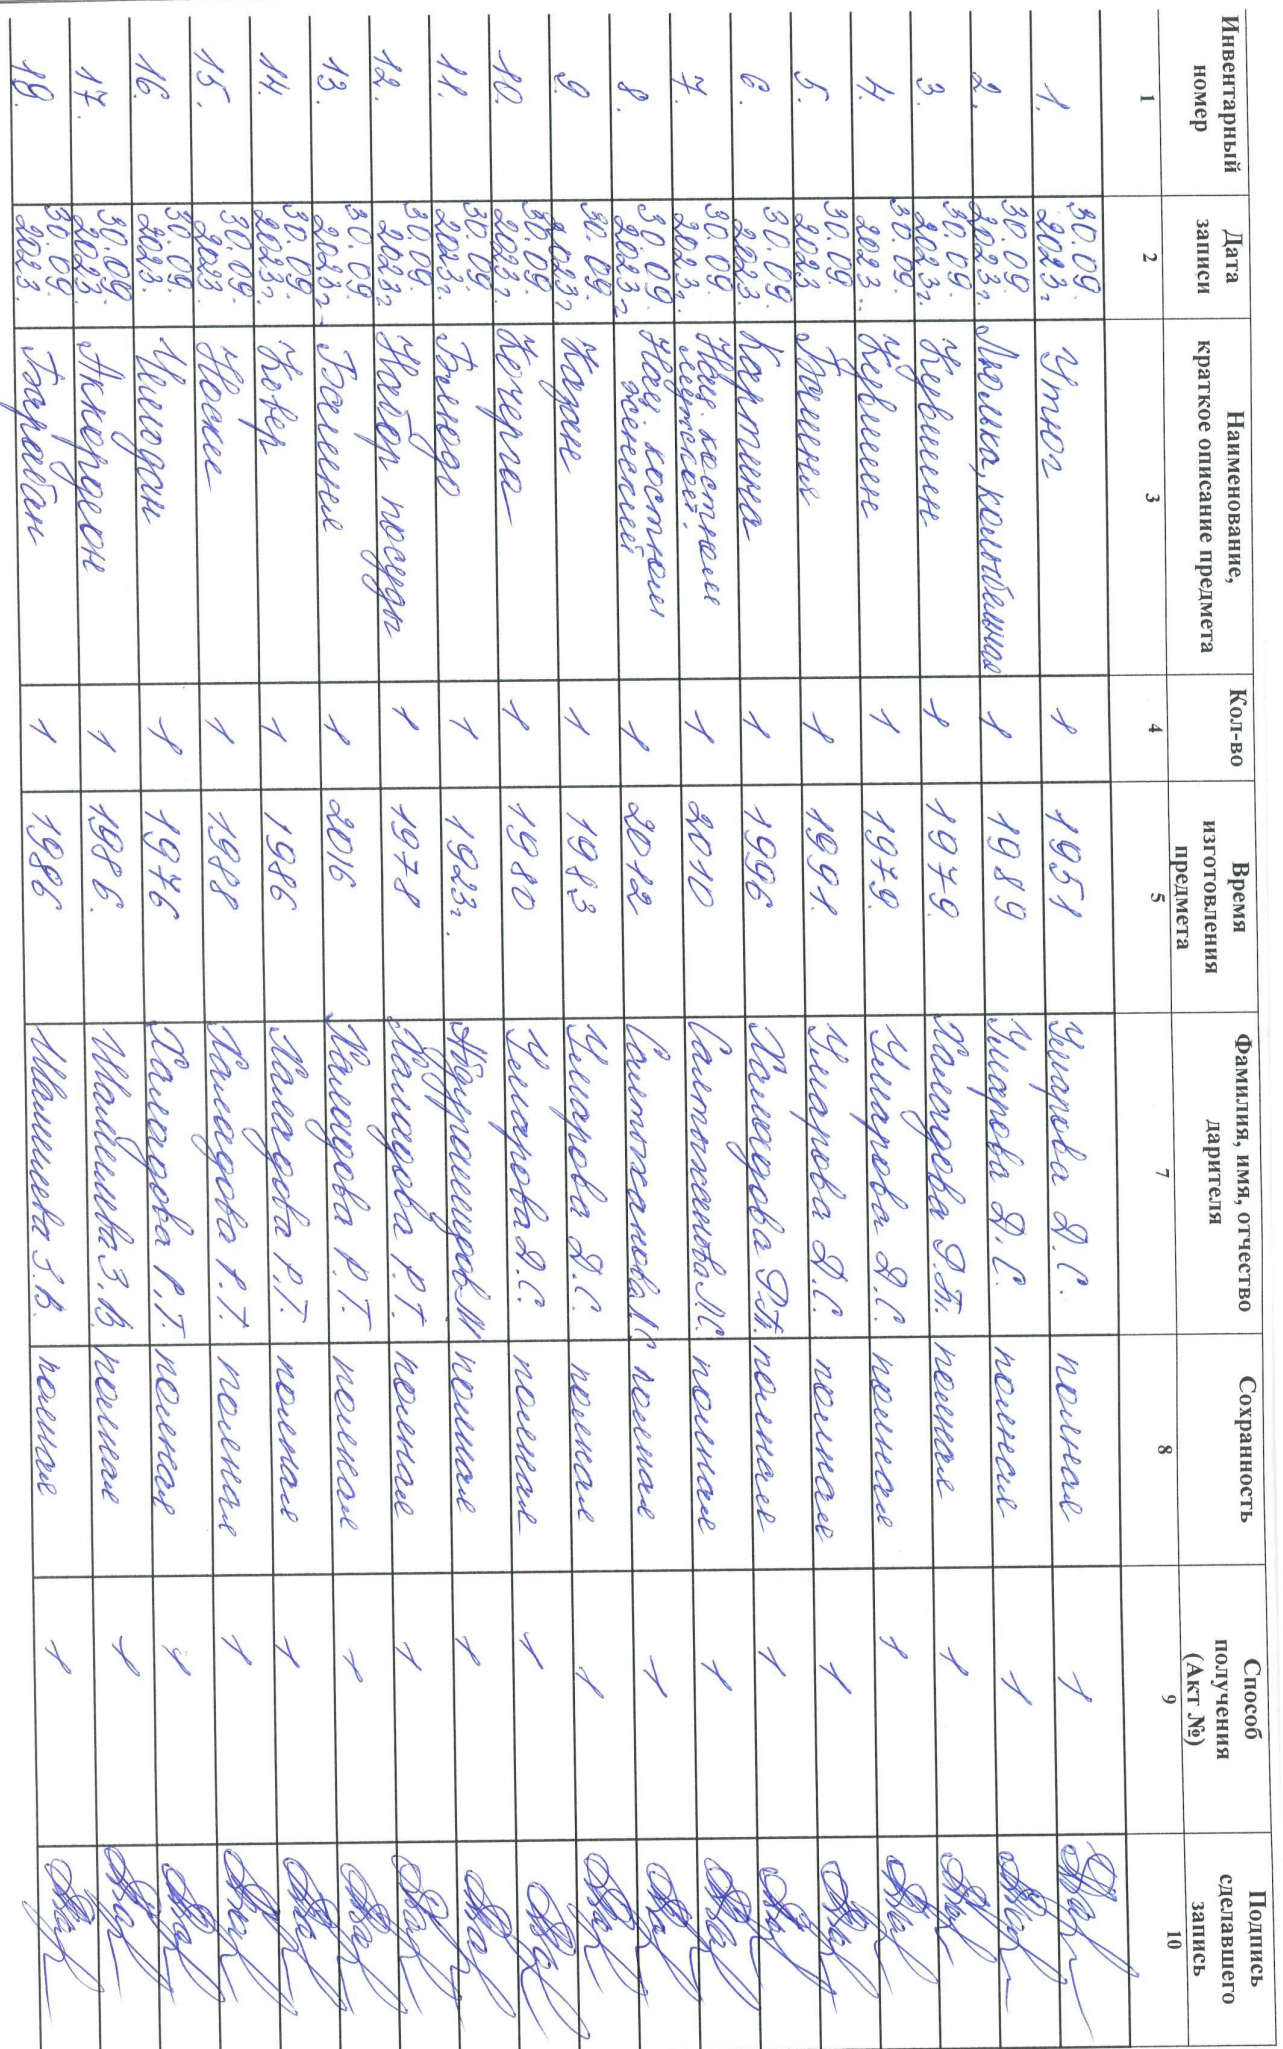 Инвентарный номер | Дата записи | Наименование, краткое описание предмета | Кол-во | Время изготовления предмета | Фамилия, имя, отчество дарителя | Сохранность | Способ получения (Акт №) | Подпись сделавшего запись
1 | 2 | 3 | 4 | 5 | 7 | 8 | 9 | 10
1. | 30.09. 2023г | Утюг | 1 | 1951 | Умарова Д.С. | полная | 1
2. | 30.09 2023г. | Люлька, колыбельная | 1 | 1989 | Умарова Д.С. | полная | 1
3. | 30.09. 2023г. | Кувшин | 1 | 1979. | Хамадова Р.Т. | полная | 1
4. | 30.09. 2023.. | Кувшин | 1 | 1979. | Умарова Д.С. | полная | 1
5. | 30.09. 2023 | Башня | 1 | 1991. | Умарова Д.С. | полная | 1
6. | 30.09 2023. | Картина | 1 | 1996 | Хамадова Р.Т. | полная | 1
7. | 30.09. 2023г. | Нац. костюм мужской. | 1 | 2010 | Салтыханова Л.С. | полная | 1
8. | 30.09 2023г | Нац. костюм женский | 1 | 2012 | Салтыханова Л.С | полная | 1
9. | 30.09. 2023г | Казан | 1 | 1983 | Умарова Д.С. | полная | 1
10. | 30.09. 2023г. | Кочерга | 1 | 1980 | Умарова Д.С. | полная | 1
11. | 30.09. 2023г. | Блюдо | 1 | 1923г. | полная | 1
12. | 30.09. 2023г | Набор посуды | 1 | 1978 | Хамадова Р.Т. | полная | 1
13. | 30.09. 2023г. | Башня | 1 | 2016 | Хамадова Р.Т. | полная | 1
14. | 30.09. 2023г. | Ковер | 1 | 1986 | Хамадова Р.Т. | полная | 1
15. | 30.09. 2023. | Носки | 1 | 1988 | Хамадова Р.Т. | полная | 1
16. | 30.09. 2023. | Чемодан | 1 | 1976 | Хамадова Р.Т. | полная | 1
17. | 30.09 2023. | Аккордеон | 1 | 1986. | З.В. | полная | 1
18. | 30.09. 2023. | Барабан | 1 | 1986 | З.В. | полная | 1